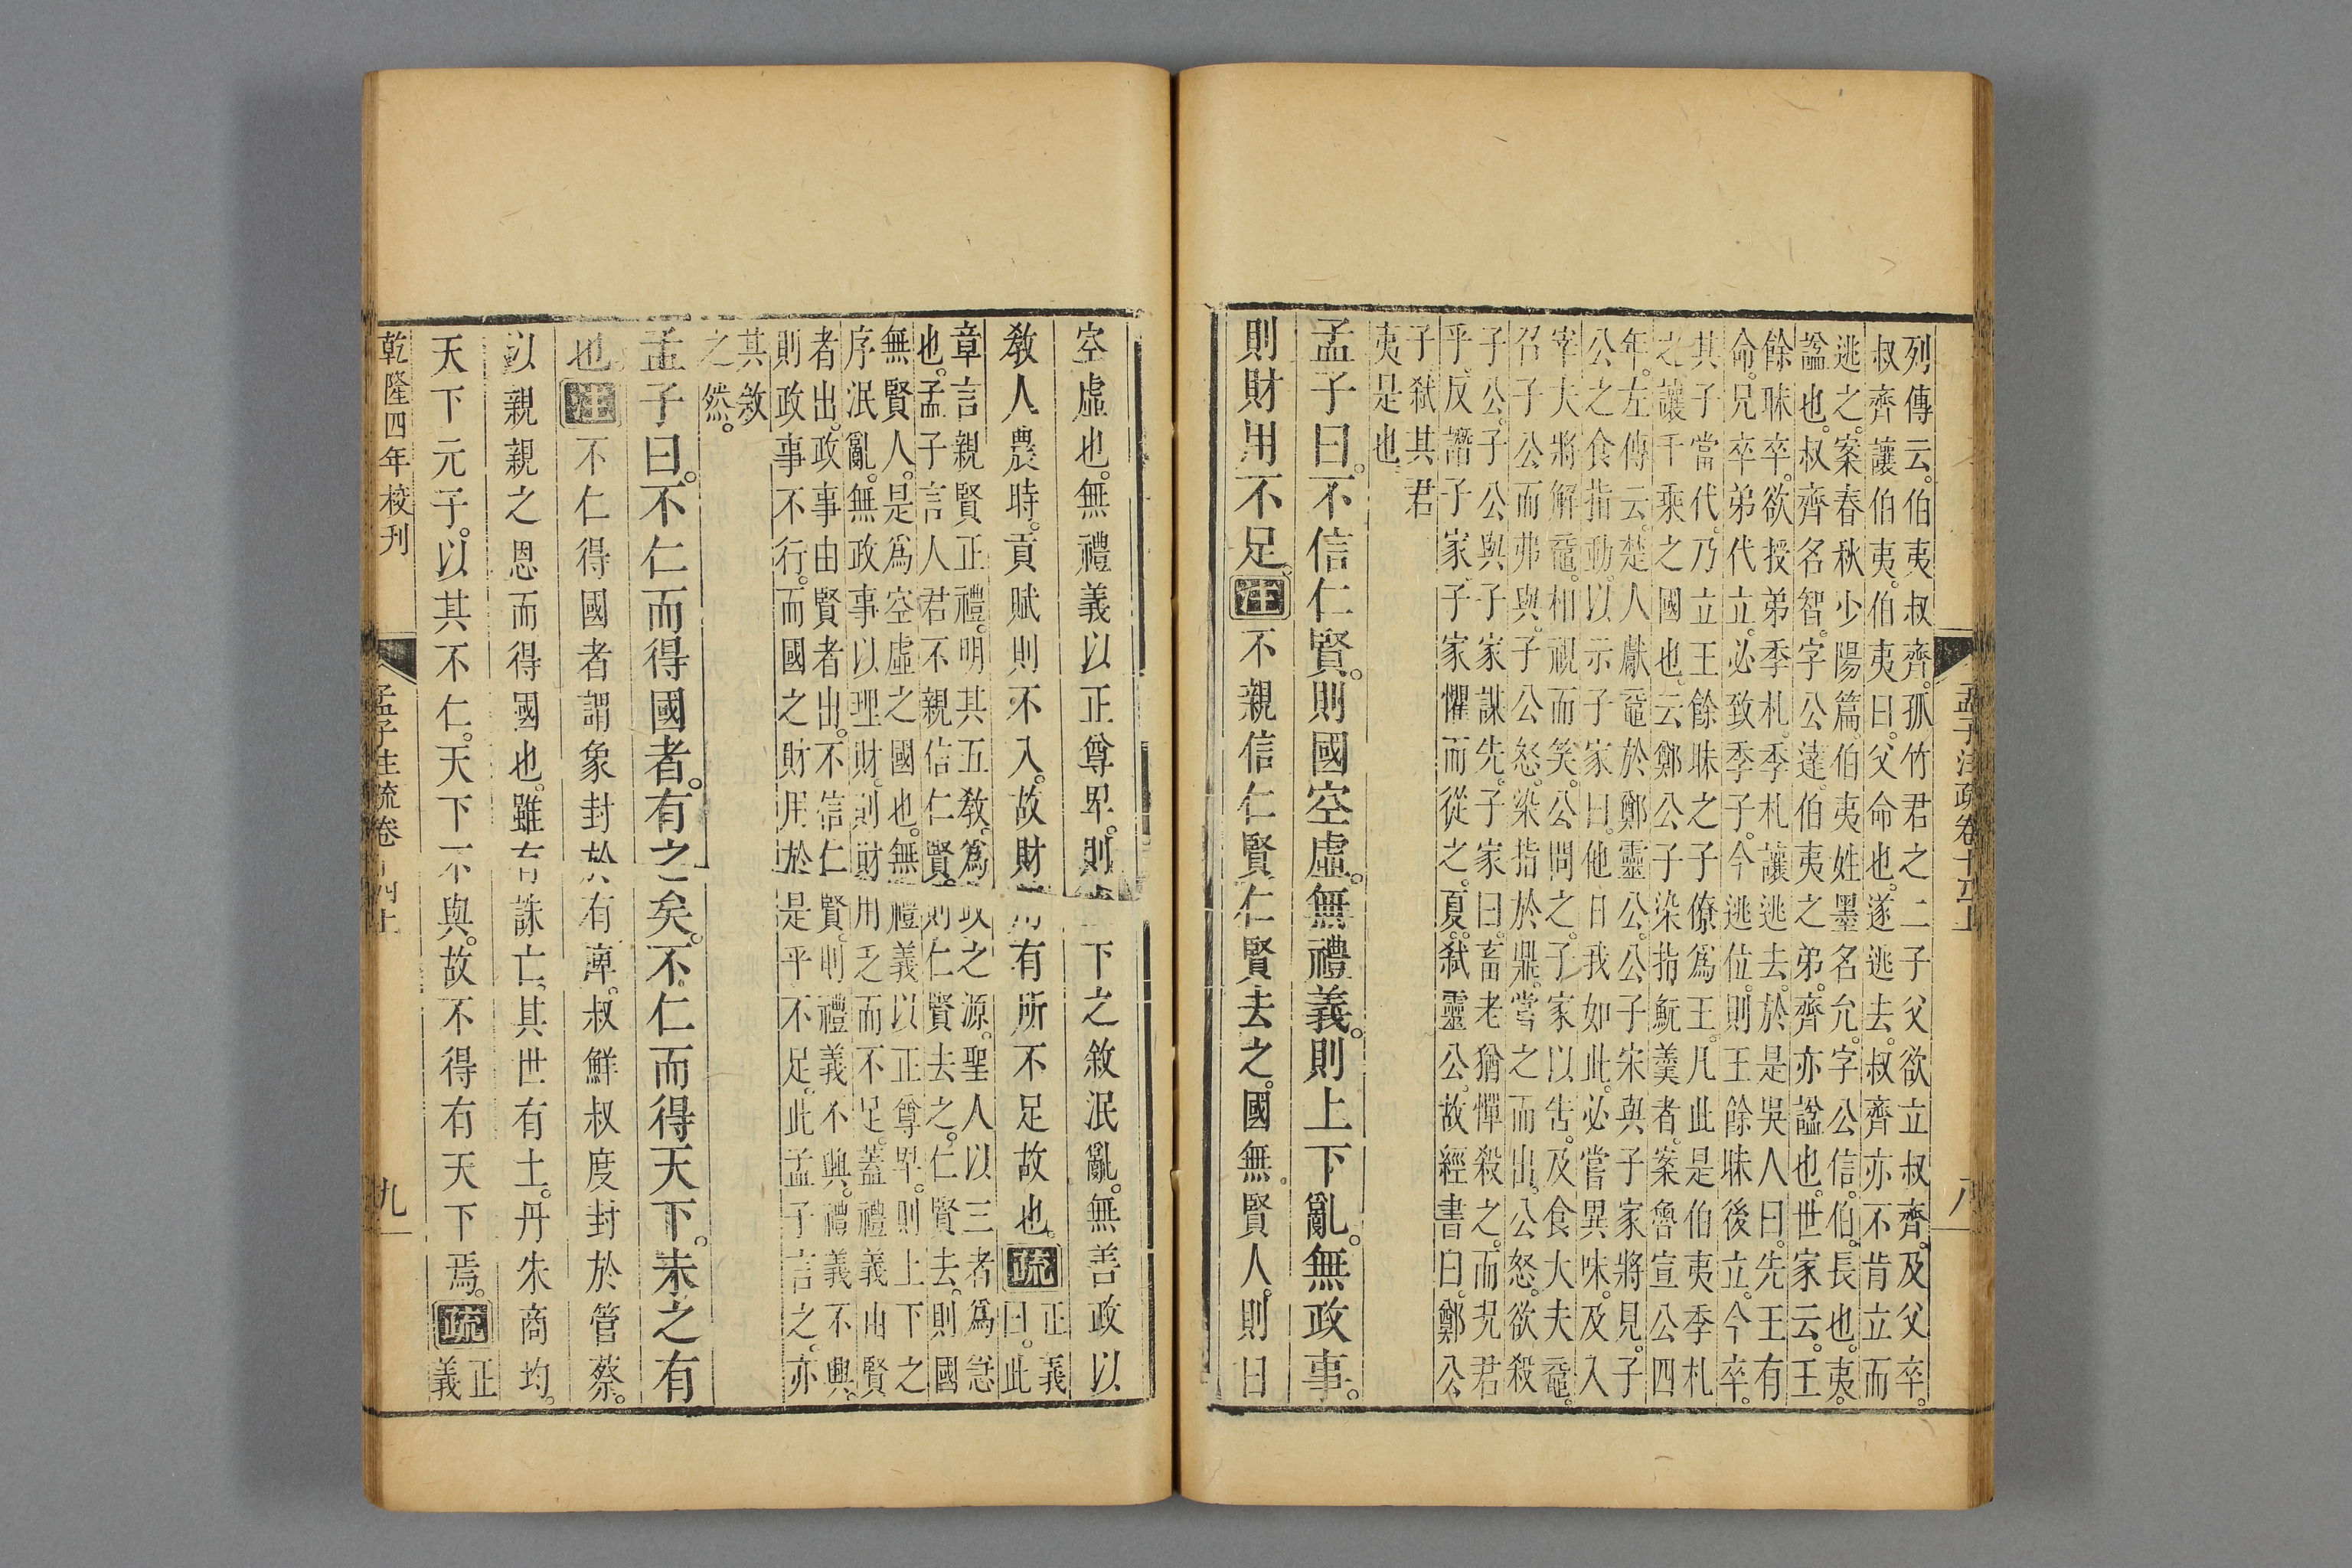 孟子注疏卷十四上
八
列傳云。伯夷叔齊。孤竹君之二子父欲立叔齊。及父卒。
叔齊讓伯夷。伯夷曰。父命也。遂逃去。叔齊亦不肯立而
逃之。案春秋少陽篇。伯夷姓墨名允。字公信。伯。長也。夷。
諡也。叔齊名智。字公達。伯夷之弟。齊亦諡也。世家云。王
餘昧卒。欲授弟季札。季札讓逃去。於是吳人曰。先王有
命。兄卒弟代立。必致季子。今逃位。則王餘昧後立。今卒。
其子當代。乃立王餘昧之子僚爲王。凡此是伯夷季札
之讓千乘之國也。云鄭公子染指魭羹者。案魯宣公四
年。左傳云。楚人獻黿於鄭靈公。公子宋與子家將見。子
公之食指動。以示子家曰。他日我如此。必嘗異味。及入
宰夫將解黿。相視而笑。公問之。子家以告。及食大夫黿。
召子公而弗與。子公怒。染指於鼎。嘗之而出。公怒。欲殺
子公。子公與子家謀先。子家曰。畜老猶憚殺之。而況君
乎。反譖子家。子家懼而從之。夏。弑靈公。故經書曰。鄭公
子弑其君
夷是也
孟子曰。不信仁賢。則國空虛。無禮義。則上下亂。無政事。
則財用不足。注不親信仁賢仁賢去之。國無賢人。則曰
空虛也。無禮義以正尊卑。則下之敘泯亂。無善政以
敎人農時。貢賦則不入。故財有所不足故也。疏正義曰。此
章言親賢正禮。明其五敎。爲政之源。聖人以三者爲急
也。孟子言人君不親信仁賢。則仁賢去之。仁賢去。則國
無賢人。是爲空虛之國也。無禮義以正尊卑。則上下之
序泯亂。無政事以理財。則財用乏而不足。蓋禮義由賢
者出。政事由賢者出。不信仁賢。則禮義不興。禮義不興。
則政事不行。而國之財用於是乎不足。此孟子言之。亦
其敘
之然。
孟子曰。不仁而得國者。有之矣。不仁而得天下。未之有
也。注不仁得國者謂象封於有庳。叔鮮叔度封於管蔡。
以親親之恩而得國也。雖有誅亡。其世有土。丹朱商均。
天下元子。以其不仁。天下不與。故不得有天下焉。疏正義
乾隆四年校刊
孟子注疏卷十四上
九